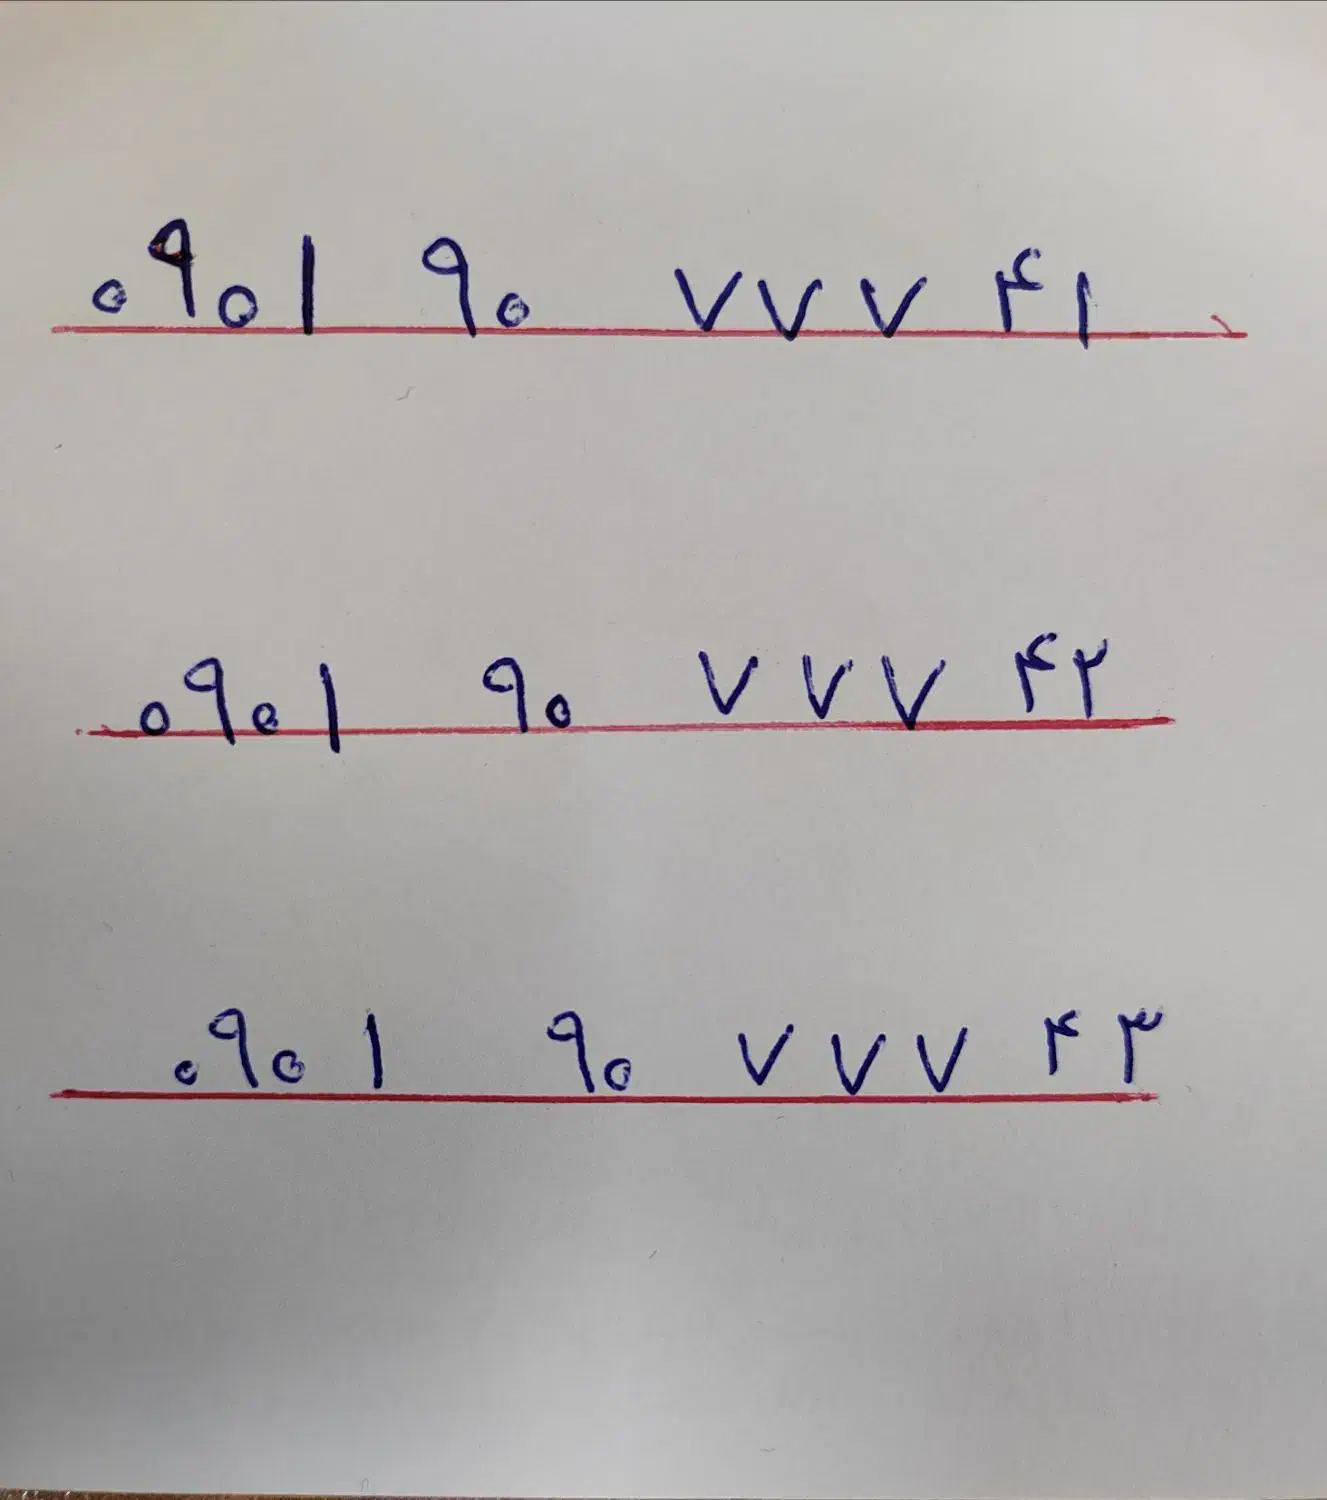 ۰۹۰۱ ۹۰ ۷۷۷ ۴۱
۰۹۰۱ ۹۰ ۷۷۷ ۴۲
۰۹۰۱ ۹۰ ۷۷۷ ۴۳